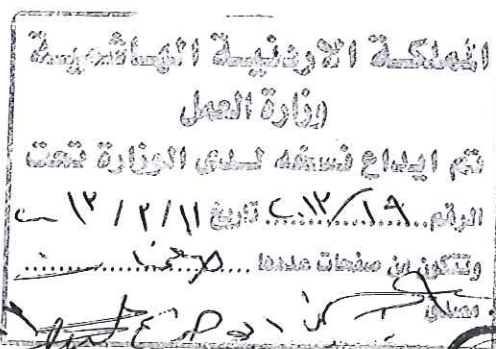 المملكة الاردنية الهاشمية
وزارة العمل
تم ايداع نسخه لدى الوزارة تحت
الرقم ٢٠١٣/١٩ تاريخ ١١/٢/١٣
وتتكون من صفحات عددها